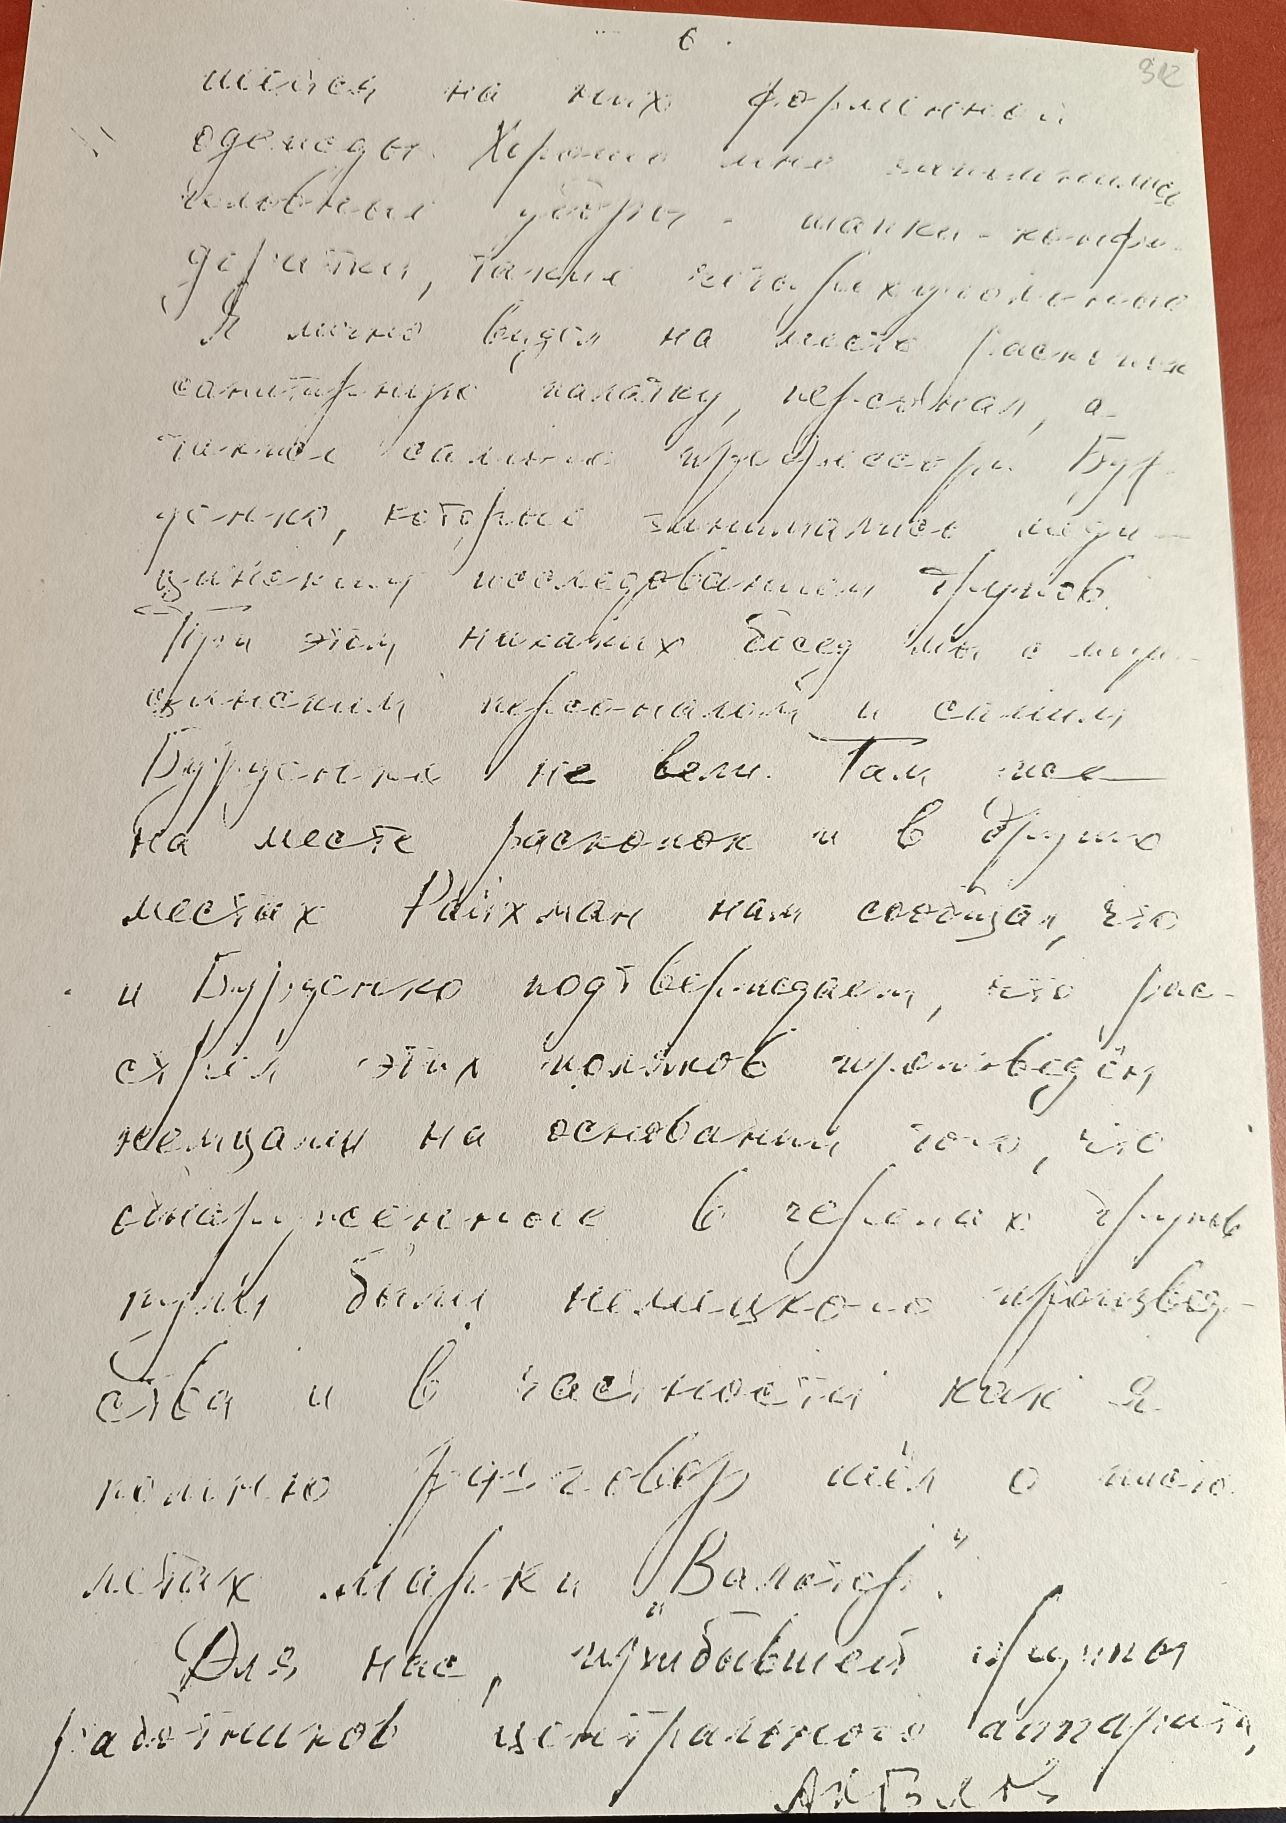 6.
92
шейся на них форменной
одежды. Хорошо мне запомнились
головные уборы - шапки - конфе-
дератки, такие четырехугольные
Я лично видел на месте раскопок
санитарную палатку, персонал, а
также самого профессора Бур-
денко, которые занимались меди-
цинским исследованием трупов.
При этом никаких бесед мы с меди-
цинским персоналом и самим
Бурденко не вели. Там же
на месте раскопок и в других
местах Райхман нам сообщал, что
и Бурденко подтверждает, что рас-
стрел этих поляков произведён
немцами на основании того, что
обнаруженные в черепах трупов
пули были немецкого производ-
ства и в частности как я
помню разговор шёл о писто
летах марки „Вальтер".
Для нас, прибывшей группы
работников центрального аппарата,